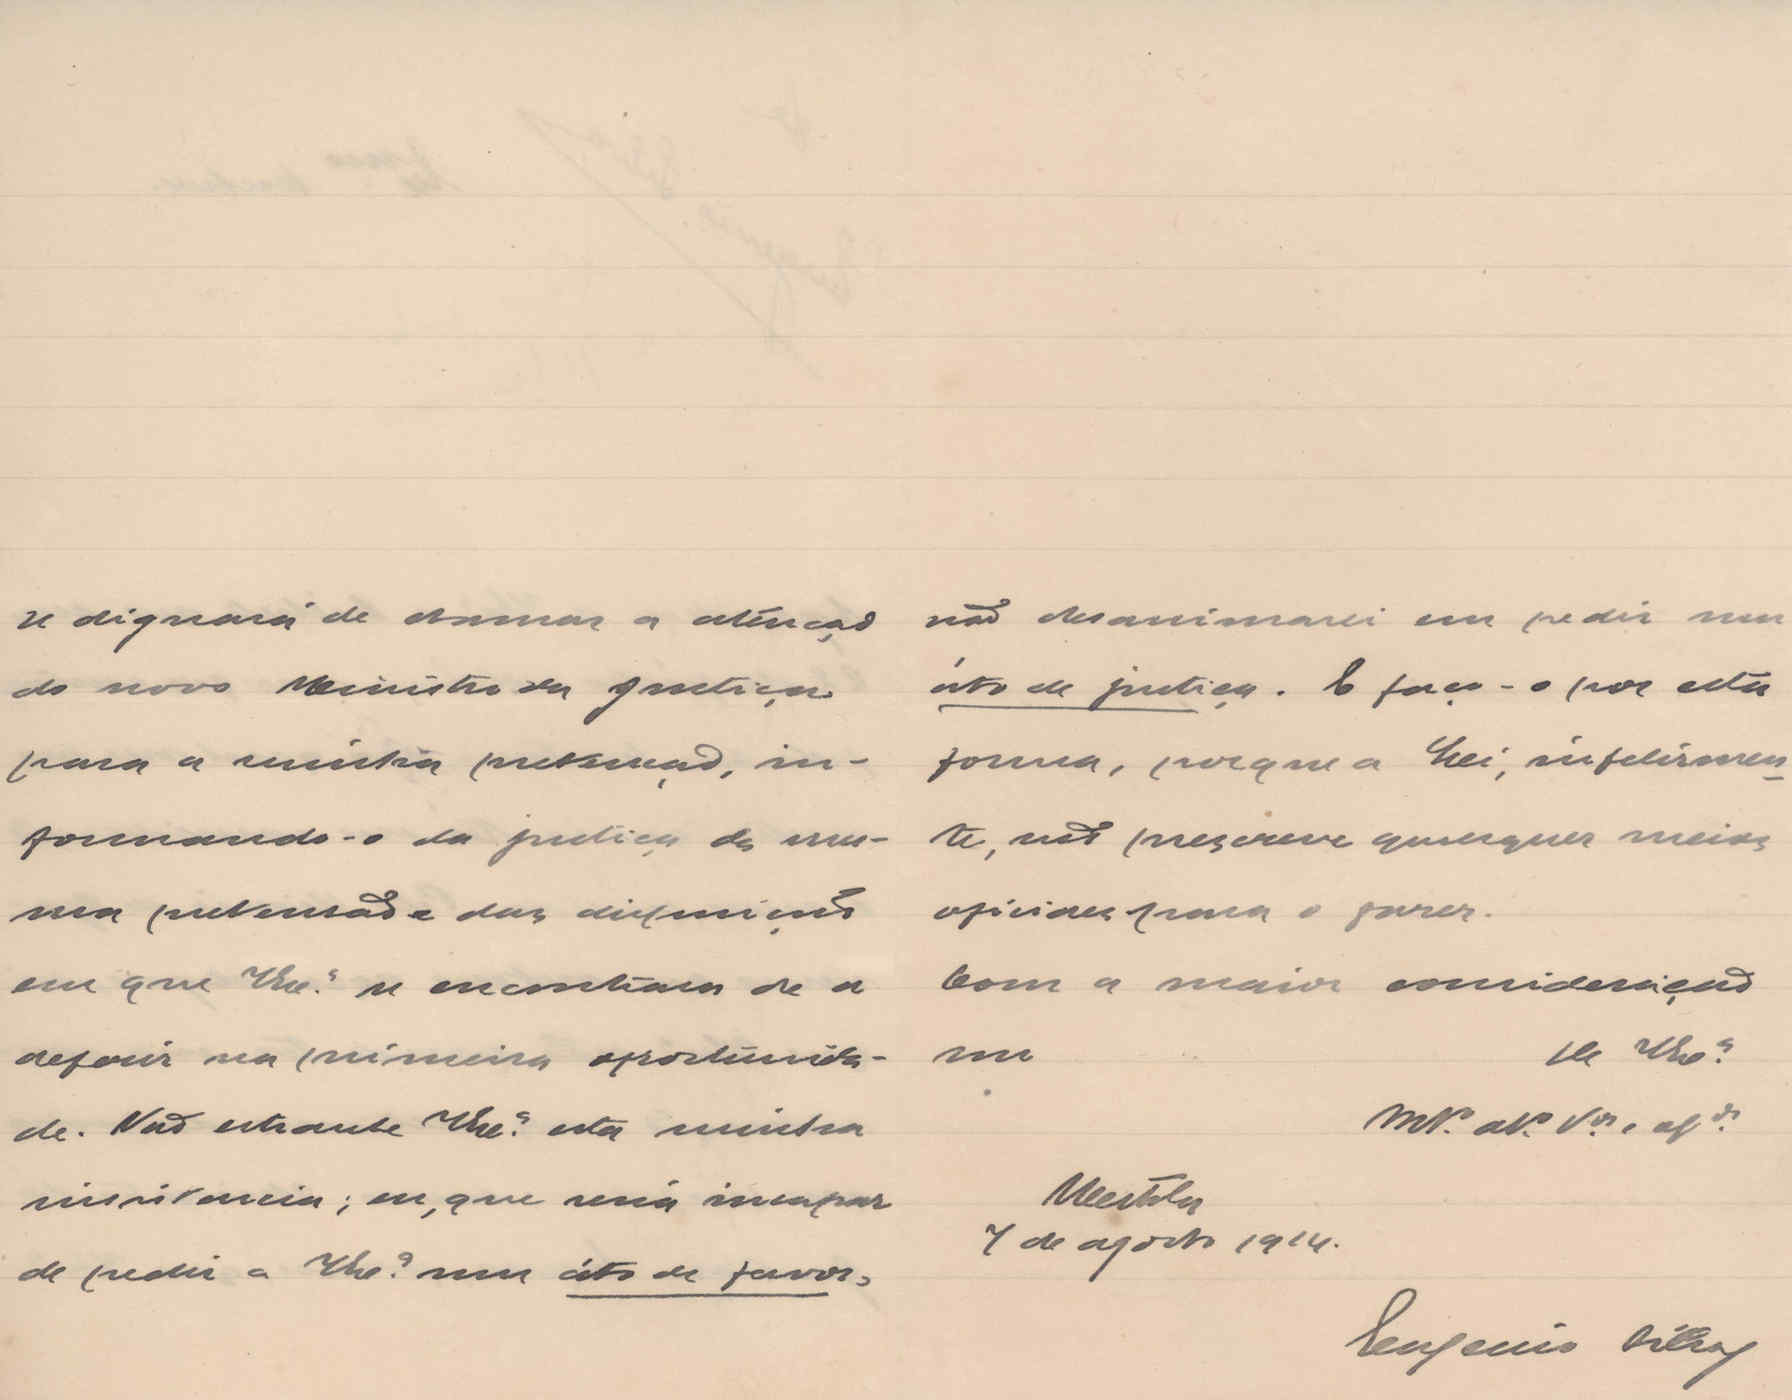 se dignará de chamar a atênção
do novo Ministro da Justiça
para a minha pretenção, in-
formando-o da justiça da mes-
ma pretensão e das disposições
em que V. Ex.ª se encontrava de a
deferir na primeira oportunida-
de. Não estranhe V. Ex.ª esta minha
insistencia; eu, que seria incapaz
de pedir a V. Ex.ª um áto de favor,
não desanimarei em pedir um
áto de justiça. E faço-o por esta
forma, porque a Lei, infelizmen-
te, não prescreve quaesquer meios
oficiaes para o fazer.
Com a maior consideração
sou
de V. Ex.ª
M.to at.to V.or e
Mertola
7 de agosto 1914.
Eugenio